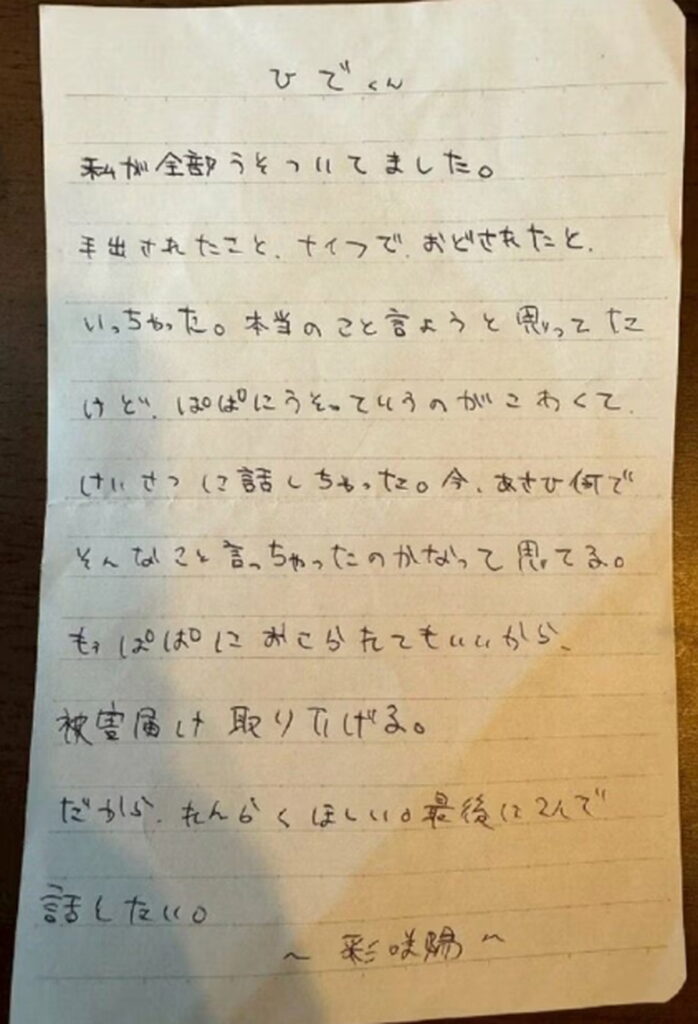 ひでくん
私が全部うそついてました。
手出されたこと、ナイフで、おどされたと、
いっちゃった。本当のこと言ようと思ってた
けど、ぱぱにうそっていうのがこわくて、
けいさつに話しちゃった。今、あさひ何で
そんなこと言っちゃったのかなって思てる。
もぅぱぱにおこられてもいいから、
被害届け取り下げる。
だから、れんらくほしい。最後に2人で
話したい。
～ 彩咲陽 ～